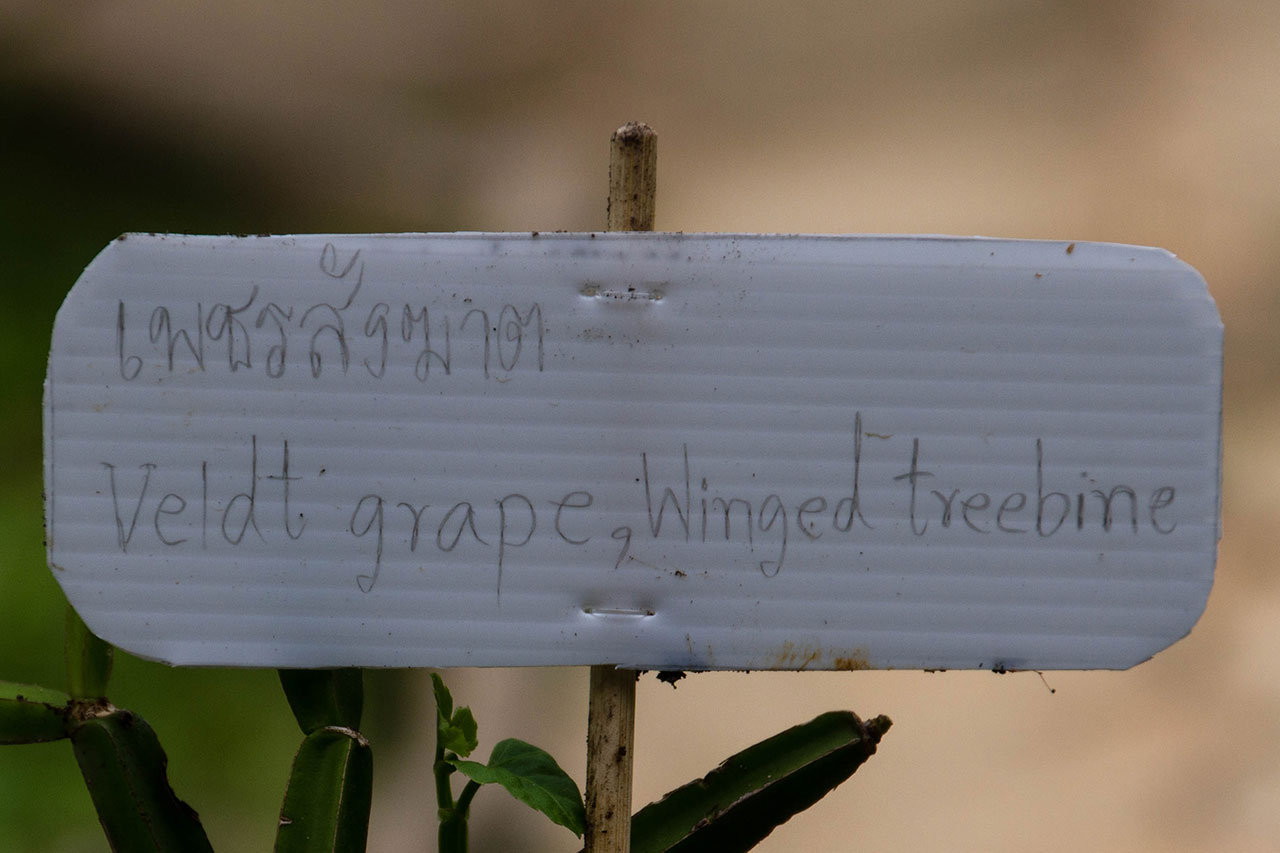 เพชรสังฆาต
Veldt grape, Winged treebine